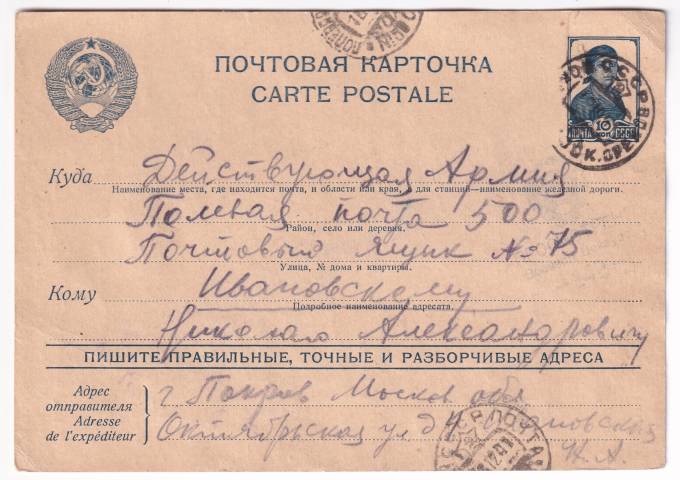 ПОЧТОВАЯ КАРТОЧКА
CARTE POSTALE
ПОЧТА 10 КОП СССР
Куда Действующая Армия
Наименование места, где находится почта, и области или края, а для станций—наименование железной дороги.
Полевая почта 500
Район, село или деревня.
Почтовый ящик № 75
Улица, № дома и квартиры.
Кому Ивановскому
Подробное наименование адресата.
Николаю Александровичу
ПИШИТЕ ПРАВИЛЬНЫЕ, ТОЧНЫЕ И РАЗБОРЧИВЫЕ АДРЕСА
Адрес
отправителя
Adresse
de l'expéditeur
г Покров Москов обл
Октябрьская ул д
Н. А.